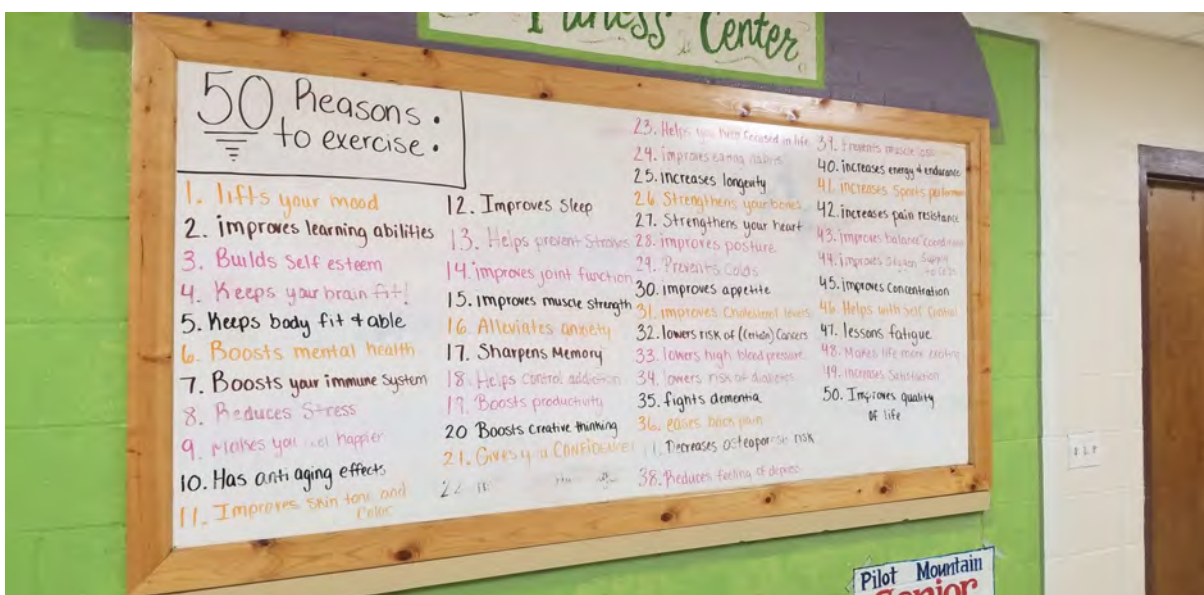 Fitness Center
50 Reasons :
to exercise :
1. lifts your mood
2. improves learning abilities
3. Builds Self esteem
4. Keeps your brain fit!
5. Keeps body fit & able
6. Boosts mental health
7. Boosts your immune System
8. Reduces Stress
9. Makes you happier
10. Has anti aging effects
11. Improves Skin tone and
Color
12. Improves Sleep
13. Helps prevent Strokes
14. improves joint function
15. improves muscle strength
16. Alleviates anxiety
17. Sharpens Memory
18. Helps Control addiction
19. Boosts productivity
20 Boosts creative thinking
21. Gives you CONFIDENCE!
22
23. Helps you keep focused in life
24. improves eating habits
25. increases longevity
26. Strengthens your bones
27. Strengthens your heart
28. improves posture
29. Prevents Colds
30. improves appetite
31. improves Cholesterol levels
32. lowers risk of (Certain) Cancers
33. lowers high blood pressure
34. lowers risk of diabetes
35. fights dementia
36. eases back pain
Decreases osteoporosis risk
38. Reduces feeling of
39. Prevents muscle loss
40. increases energy & endurance
41. increases Sports
42. increases pain resistance
43. improves balance
44. improves Supply
to Cells
45. improves Concentration
46. Helps with Self Control
47. lessons fatigue
48. Makes life more exciting
49. increases Satisfaction
50. Improves quality
OF life
Pilot Mountain
Senior